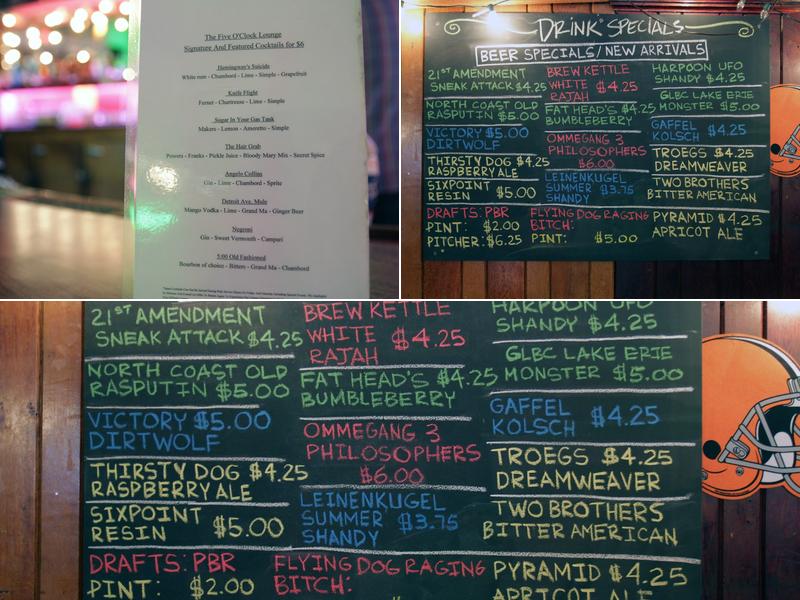 The Five O'Clock Lounge
Signature And Featured Cocktails for $6
Hemingway's Suicide
White rum - Chambord - Lime - Simple - Grapefruit
Knife Flight
Fernet - Chartreuse - Lime - Simple
Sugar In Your Gas Tank
Makers - Lemon - Amaretto - Simple
The Hair Grab
Powers - Franks - Pickle Juice - Bloody Mary Mix - Secret Spice
Angelo Collins
Gin - Lime - Chambord - Sprite
Detroit Ave. Mule
Mango Vodka - Lime - Grand Ma - Ginger Beer
Negroni
Gin - Sweet Vermouth - Campari
5:00 Old Fashioned
Bourbon of choice - Bitters - Grand Ma - Chambord
DRINK SPECIALS
BEER SPECIALS/NEW ARRIVALS
21ST AMENDMENT
SNEAK ATTACK $4.25
NORTH COAST OLD
RASPUTIN $5.00
VICTORY $5.00
DIRTWOLF
THIRSTY DOG $4.25
RASPBERRY ALE
SIXPOINT
RESIN $5.00
DRAFTS: PBR
PINT: $2.00
PITCHER: $6.25
BREW KETTLE
WHITE $4.25
RAJAH
FAT HEAD'S $4.25
BUMBLEBERRY
OMMEGANG 3
PHILOSOPHERS
$6.00
LEINENKUGEL
SUMMER $3.75
SHANDY
FLYING DOG RAGING
BITCH:
PINT: $5.00
HARPOON UFO
SHANDY $4.25
GLBC LAKE ERIE
MONSTER $5.00
GAFFEL
KOLSCH $4.25
TROEGS $4.25
DREAMWEAVER
TWO BROTHERS
BITTER AMERICAN
PYRAMID $4.25
APRICOT ALE
21ST AMENDMENT
SNEAK ATTACK $4.25
NORTH COAST OLD
RASPUTIN $5.00
VICTORY $5.00
DIRTWOLF
THIRSTY DOG $4.25
RASPBERRY ALE
SIXPOINT
RESIN $5.00
DRAFTS: PBR
PINT: $2.00
BREW KETTLE
WHITE $4.25
RAJAH
FAT HEAD'S $4.25
BUMBLEBERRY
OMMEGANG 3
PHILOSOPHERS
$6.00
LEINENKUGEL
SUMMER $3.75
SHANDY
FLYING DOG RAGING
BITCH:
HARPOON UFO
SHANDY $4.25
GLBC LAKE ERIE
MONSTER $5.00
GAFFEL
KOLSCH $4.25
TROEGS $4.25
DREAMWEAVER
TWO BROTHERS
BITTER AMERICAN
PYRAMID $4.25
APRICOT ALE